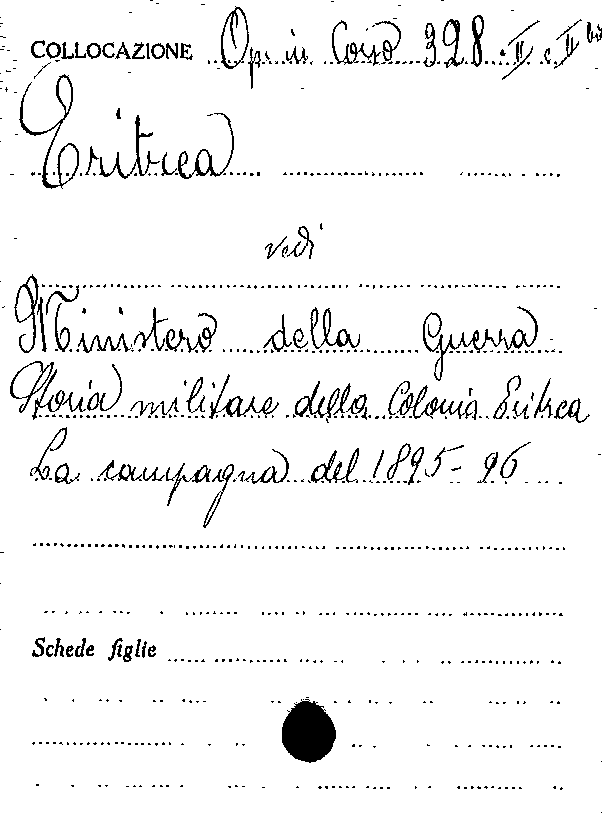 COLLOCAZIONE Op. in Corso 328. II e II bis
Eritrea
vedi
Ministero della Guerra
Storia militare della Colonia Eritrea
La campagna del 1895-96
Schede figlie